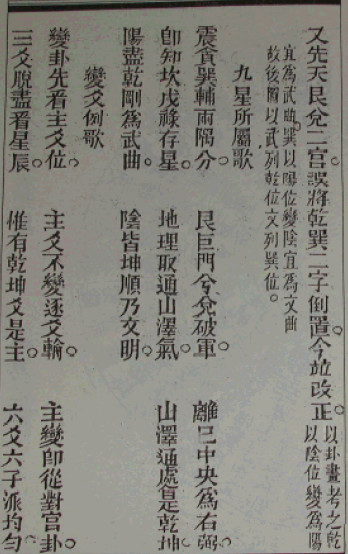 又先天艮兌二宮誤將乾巽二字倒置今竝改正
以卦畫考之乾
以陰位變為陽
宜為武曲巽以陽位變陰宜為文曲
故後圖以武列乾位文列巽位
九星所屬歌
震貪巽輔兩隅分 艮巨門兮兌破軍 離巳中央為右弼
即知坎戊祿存星 地理取通山澤氣 山澤通處是乾坤
陽盡乾剛為武曲 陰皆坤順乃文明
變爻倒歌
變卦先看主爻位 主爻不變逐爻輪 主變即從對宮卦
三爻脫盡看星辰 惟有乾坤爻是主 六爻六子派均勻